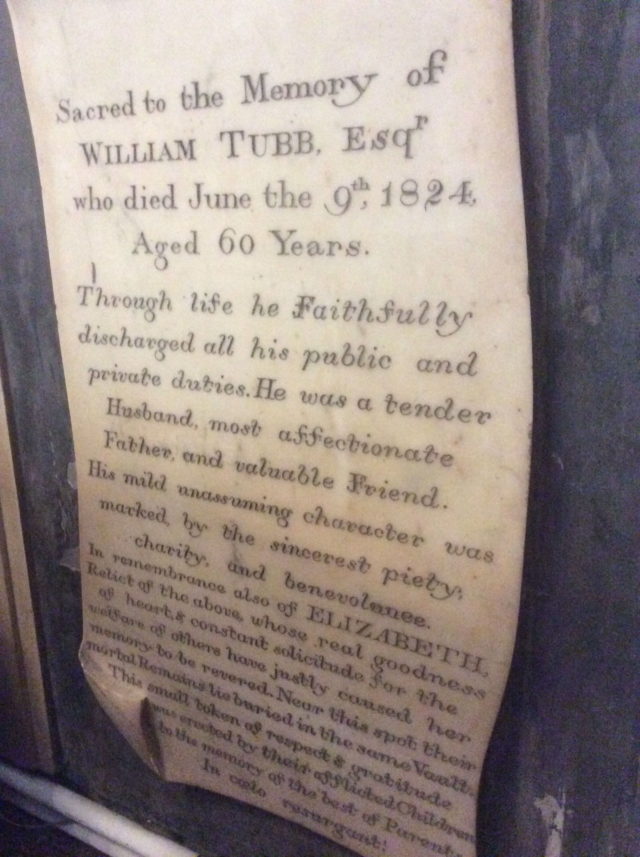 Sacred to the Memory of
WILLIAM TUBB, Esqr
who died June the 9th, 1824,
Aged 60 Years.
Through life he Faithfully
discharged all his public and
private duties. He was a tender
Husband, most affectionate
Father, and valuable Friend.
His mild unassuming character was
marked, by the sincerest piety,
charity, and benevolence.
In remembrance also of ELIZABETH,
Relict of the above, whose real goodness
of heart & constant solicitude for the
welfare of others have justly caused her
memory to be revered. Near this spot their
mortal Remains lie buried in the same Vault.
This small token of respect & gratitude
was erected by their afflicted Children
to the memory of the best of Parents.
In cœlo resurgant!